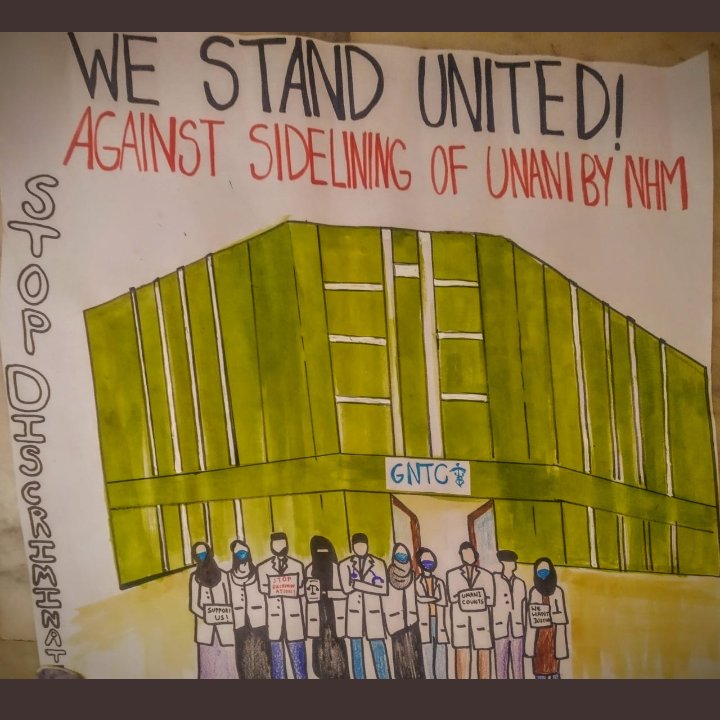 WE STAND UNITED!
AGAINST SIDELINING OF UNANI BY NHM
STOP DISCRIMINAT
GNTC
SUPPORT
US!
STOP
UNANI
COUNTS
WE
WANT